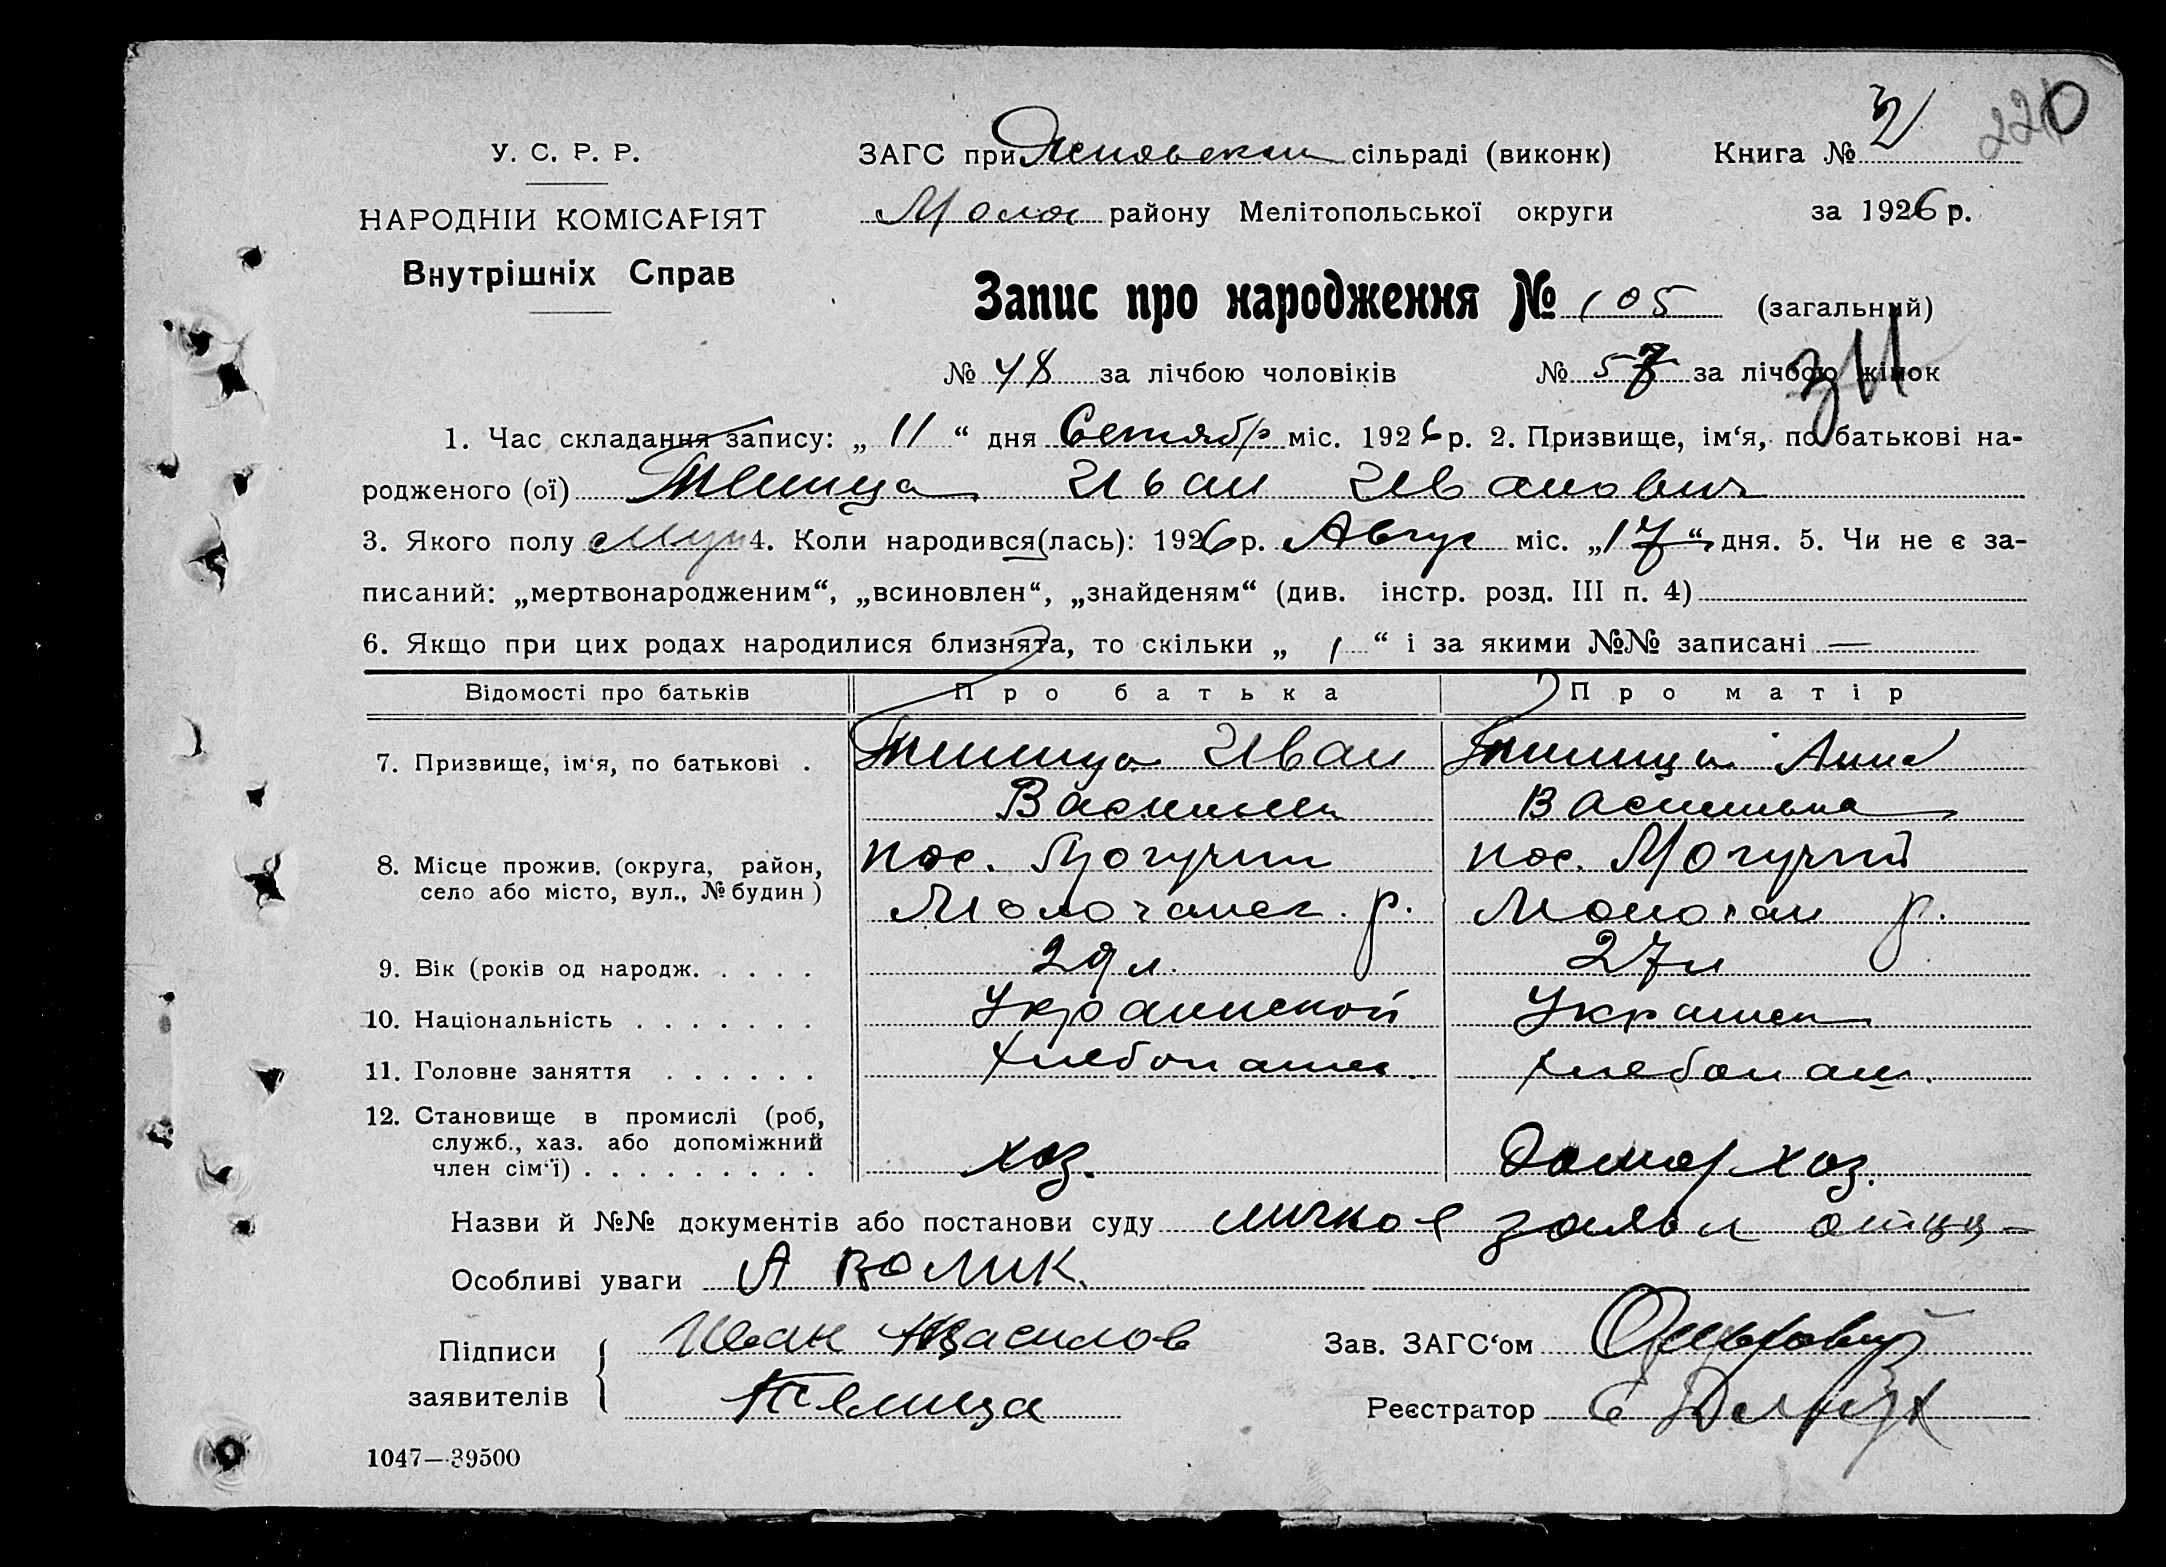 220
У. С. Р. Р.
ЗАГС при сільраді (виконк) Книга №
НАРОДНІЙ КОМІСАРІЯТ
Молоч району Мелітопольської округи за 1926 р.
Внутрішніх Справ
Запис про народження № 105 (загальний)
№ 48 за лічбою чоловіків № 57 за лічбою жінок
1. Час складання запису: „ 11 “ дня Сентябр міс. 1926 р. 2. Призвище, ім‘я, по батькові на-
родженого (ої) Теница Иван Иванович
3. Якого полу Муж 4. Коли народився(лась): 1926 р. Август міс. „17“ дня. 5. Чи не є за-
писаний: „мертвонародженим“, „всиновлен“, „знайденям“ (див. інстр. розд. III п. 4)
6. Якщо при цих родах народилися близнята, то скільки „ 1 “ і за якими №№ записані —
Відомості про батьків Про батька Про матір
7. Призвище, ім‘я, по батькові . Иван Анна
Васильев Васильевна
8. Місце прожив. (округа, район, пос. Могучий пос. Могучий
село або місто, вул., № будин ) Молочанск. р. Молочан р.
9. Вік (років од народж. . . . . 29 л. 27 л
10. Національність . . . . . . . Украинской Украинск
11. Головне заняття . . . . . . Хлебопашец. Хлебопаш.
12. Становище в промислі (роб,
служб., хаз. або допоміжний
член сім‘ї) . . . . . . . . . хоз. Домохоз.
Назви й №№ документів або постанови суду личное заявл отца
Особливі уваги
Підписи Иван Василов
Зав. ЗАГС‘ом
заявителів
Реєстратор
1047—39500